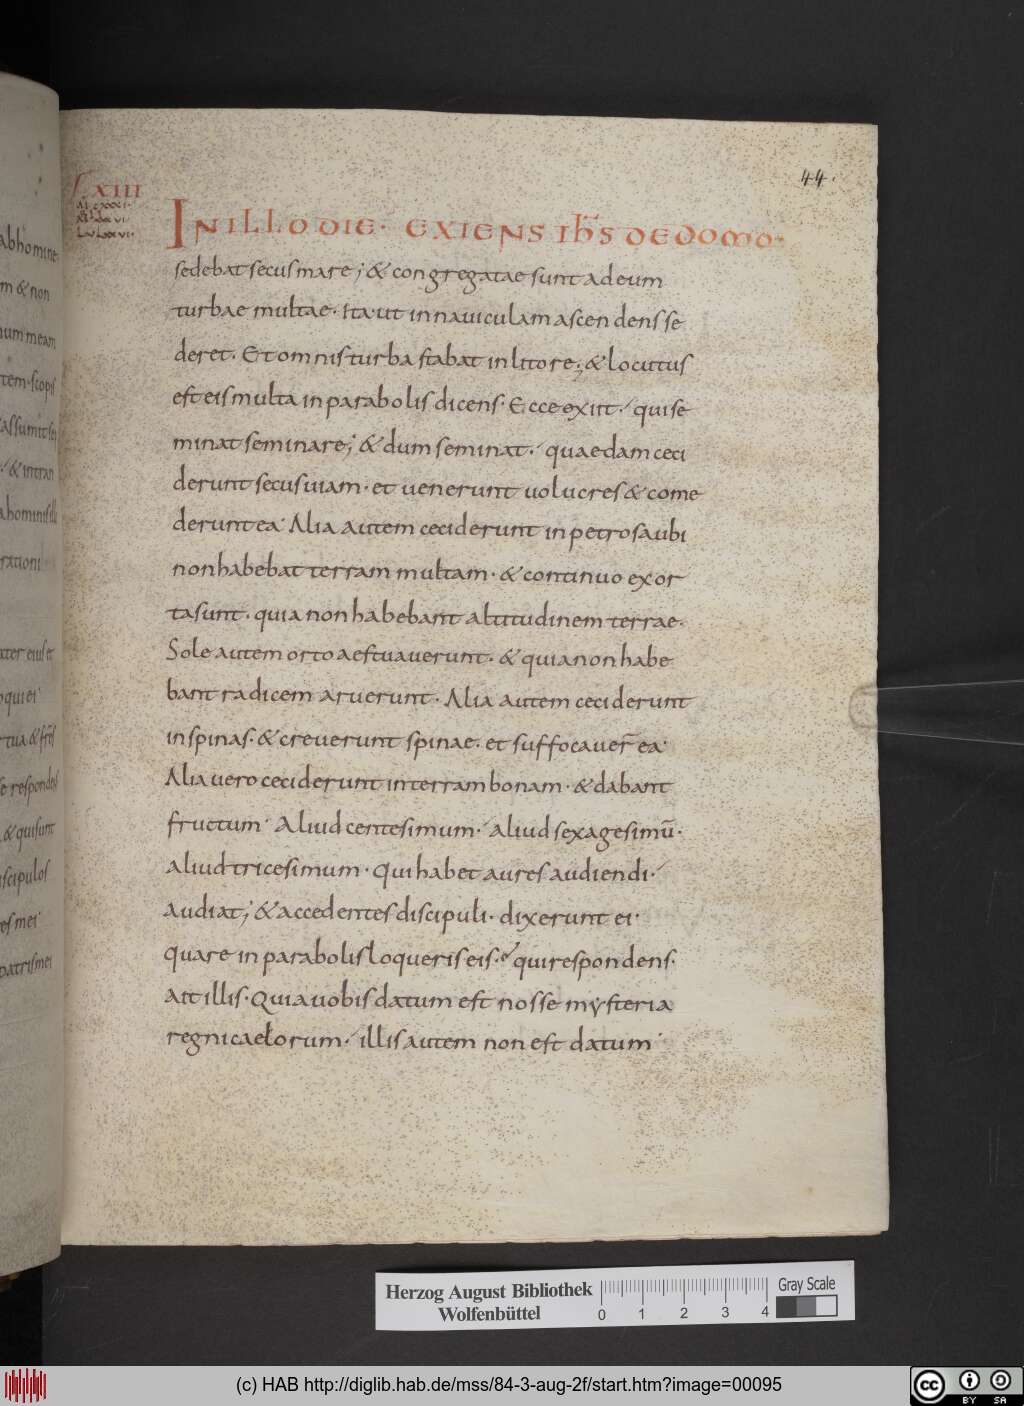 44.
IN ILLO DIE· EXIENS IHS̅ DE DOMO·
sedebat secus mare; & congregatae sunt ad eum
turbae multae· Ita ut in nauiculam ascendens se
deret· Et omnis turba stabat in litore; & locutus
est eis multa in parabolis dicens· Ecce exiit· qui se
minat seminare; & dum seminat· quaedam ceci
derunt secus uiam· et uenerunt uolucres & come
derunt ea· Alia autem ceciderunt in petrosa ubi
non habebat terram multam· & continuo exor
ta sunt· quia non habebant altitudinem terrae·
Sole autem orto aestuauerunt· & quia non habe
bant radicem aruerunt· Alia autem ceciderunt
in spinas· & creuerunt spinae· et suffocauer̅ ea·
Alia uero ceciderunt in terram bonam· & dabant
fructum· Aliud centesimum· aliud sexagesimu̅·
aliud tricesimum· Qui habet aures audiendi·
audiat; & accedentes discipuli· dixerunt ei·
quare in parabolis loqueris eis· qui respondens·
ait illis· Quia uobis datum est nosse mẏsteria
regni caelorum· illis autem non est datum·
ab homine
m & non
num meam
tem· scopis
assumit se
& intran
hominis illi
rationi
ater eius et
oqui ei
tua & fr̅s
se respondes
& qui sunt
iscipulos
es mei
patris mei
Herzog August Bibliothek
Wolfenbüttel
0 1 2 3 4
Gray Scale
(c) HAB http://diglib.hab.de/mss/84-3-aug-2f/start.htm?image=00095
cc BY SA